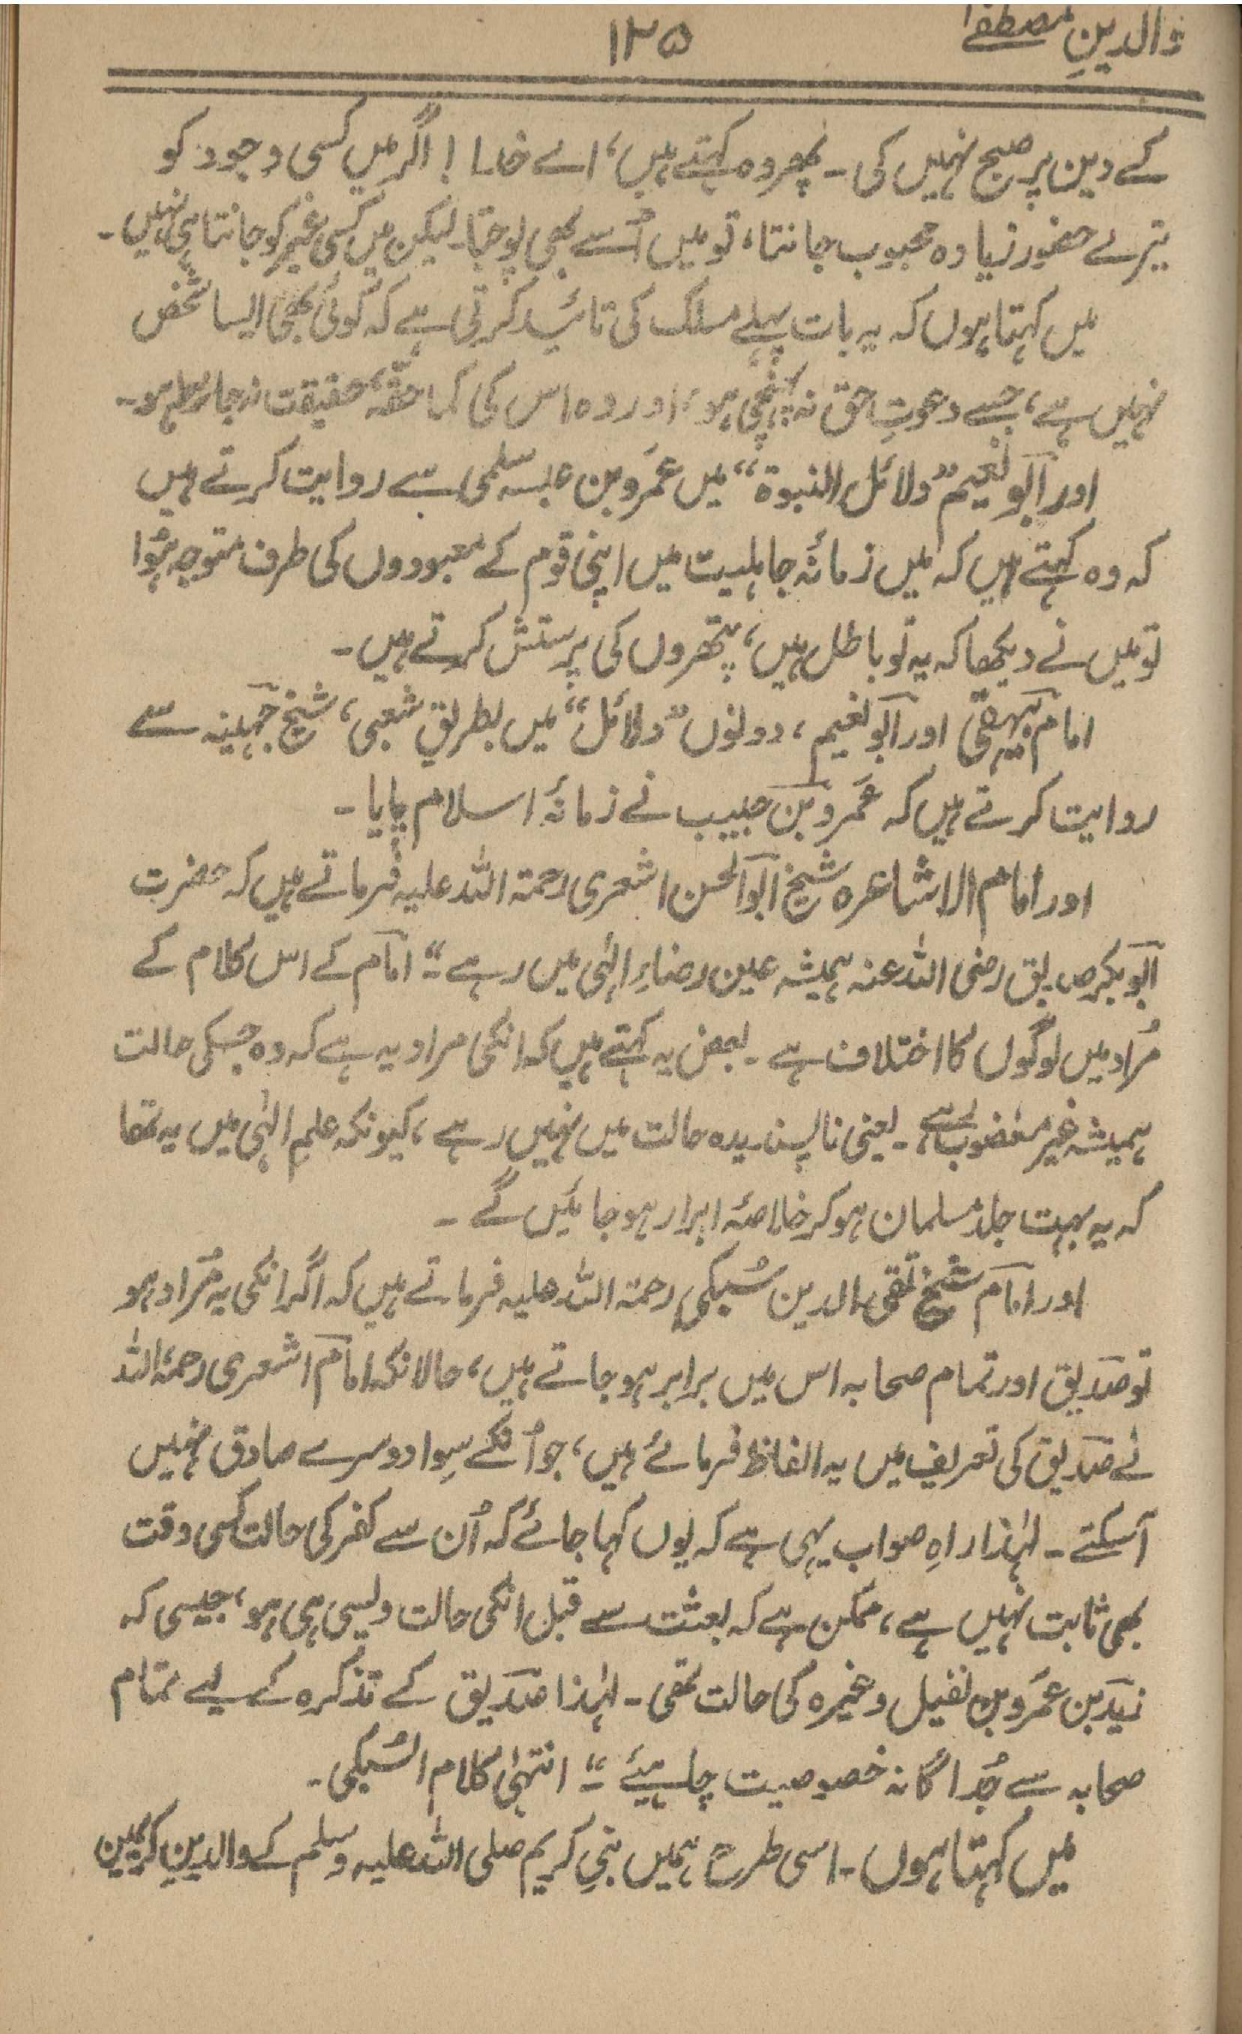 والدینِ مصطفےٰ
۱۳۵
کے دین پر صبح نہیں کی ۔ پھر وہ کہتے ہیں ، اے خدا ! اگر میں کسی وجود کو
تیرے حضور زیادہ محبوب جانتا ، تو میں اُسے بھی پوجتا۔ لیکن میں کسی غیر کو جانتا ہی نہیں ۔
میں کہتا ہوں کہ یہ بات پہلے مسلک کی تائید کرتی ہے کہ کوئی بھی ایسا شخص
نہیں ہے ، جسے دعوتِ حق نہ پہنچی ہو ، اور وہ اس کی کما حقّہٗ حقیقت نہ جانتا ہو ۔
اور ابو نعیم ”دلائل النبوۃ“ میں عمَرو بن عبسہ سلمی سے روایت کرتے ہیں
کہ وہ کہتے ہیں کہ میں زمانۂ جاہلیت میں اپنی قوم کے معبودوں کی طرف متوجہ ہُوا
تو میں نے دیکھا کہ یہ تو باطل ہیں ، پتھروں کی پرستش کرتے ہیں ۔
امام بیہقی اور ابو نعیم ، دونوں ”دلائل“ میں بطریقِ شعبی ، شیخ جہینہ سے
روایت کرتے ہیں کہ عمَرو بن حبیب نے زمانۂ اسلام پایا ۔
اور امام الاشاعرہ شیخ ابو الحسن اشعری رحمۃ اللہ علیہ فرماتے ہیں کہ حضرت
ابو بکر صدیق رضی اللہ عنہ ہمیشہ عین رضاءِ الٰہی میں رہے ۔“ امام کے اس کلام کے
مُراد میں لوگوں کا اختلاف ہے ۔ بعض یہ کہتے ہیں کہ انکی مراد یہ ہے کہ وہ جسکی حالت
ہمیشہ غیر مغضوب ہے ۔ یعنی ناپسندیدہ حالت میں نہیں رہے ، کیونکہ علمِ الٰہی میں یہ تھا
کہ یہ بہت جلد مسلمان ہو کر خلاصۂ ابرار ہو جائیں گے ۔
اور امام شیخ تقی الدین سُبکی رحمۃ اللہ علیہ فرماتے ہیں کہ اگر انکی یہ مُراد ہو
تو صدیق اور تمام صحابہ اس میں برابر ہو جاتے ہیں ، حالانکہ امام اشعری رحمۃ اللہ
نے صدیق کی تعریف میں یہ الفاظ فرمائے ہیں ، جو اُنکے سِوا دوسرے صادق نہیں
آسکتے ۔ لہٰذا راہِ صواب یہی ہے کہ یوں کہا جائے کہ اُن سے کفر کی حالت کسی وقت
بھی ثابت نہیں ہے ، ممکن ہے کہ بعثت سے قبل انکی حالت ویسی ہی ہو ، جیسی کہ
زید بن عمَرو بن نفیل وغیرہ کی حالت تھی ۔ لہٰذا صدیق کے تذکرہ کے لیے تمام
صحابہ سے جُداگانہ خصوصیت چاہیئے ۔“ انتہیٰ کلام السُّبکی ۔
میں کہتا ہوں ۔ اسی طرح ہمیں نبیِ کریم صلی اللہ علیہ وسلم کے والدینِ کریمین